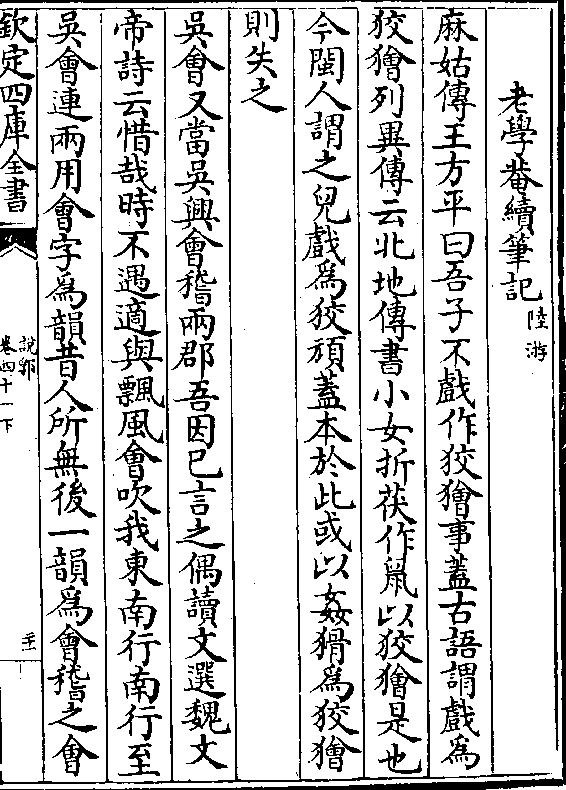 老學菴續筆記 陸游
麻姑傳王方平曰吾子不戲作狡獪事蓋古語謂戲為
狡獪列異傳云北地傳書小女折荻作鼠以狡獪是也
今閩人謂之兒戲為狡頑蓋本於此或以姦猾為狡獪
則失之
吳會又當吳興會稽兩郡吾因已言之偶讀文選魏文
帝詩云惜哉時不遇適與飄風會吹我東南行南行至
吳會連兩用會字為韻昔人所無後一韻為會稽之會
欽定四庫全書
說郛
卷四十一下